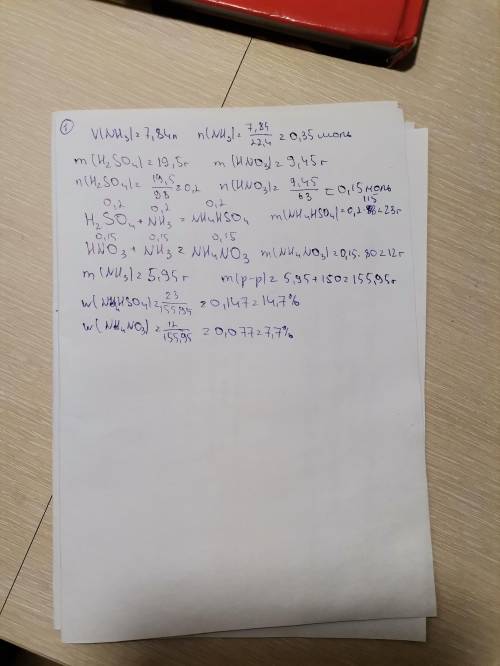 1
V(NH3)=7,84л n(NH3)=7,84/22,4=0,35 моль
m(H2SO4)=19,5г m(HNO3)=9,45г
n(H2SO4)=19,5/98=0,2 n(HNO3)=9,45/63=0,15 моль
0,2 0,2 0,2 115
H2SO4+NH3=NH4HSO4 m(NH4HSO4)=0,2·=23г
0,15 0,15 0,15
HNO3+NH3=NH4NO3 m(NH4NO3)=0,15·80=12г
m(NH3)=5,95г m(р-р)=5,95+150=155,95г
w(NH4HSO4)=23/155,94=0,147=14,7%
w(NH4NO3)=12/155,95=0,077=7,7%